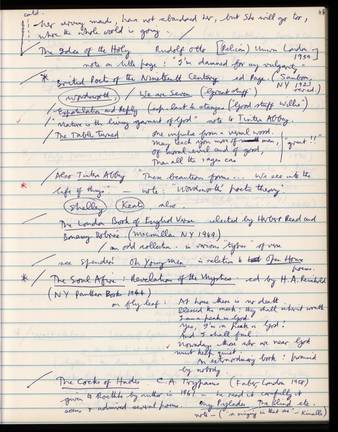 could
her wrong made, have not abandoned her, but she will go too,
when the whole world is going.
The Idea of the Holy Rudolf Otto [Relig] Univ London
1950
note on title page: "I'm damned for my vulgarity
* British Poets of the Nineteenth Century ed Page (Sanborn,
NY 1925
Wordsworth / We are Seven (great stuff)
Expostulation and Reply (esp. last 2 stanzas [Good stuff Willie)
"Nature is the living garment of God" note to Tintern Abbey.
The Tables Turned One impulse from a vernal wood
May teach you more of man,
Of moral evil and of good,
Than all the sages can
"great!!"
* Also Tintern Abbey "These beauteous forms... We see into the
life of things" – note: 'Wordsworth's poetic theory'
Shelley Keats also.
The London Book of English Verse selected by Herbert Read and
Bonamy Dobrée (Macmillan NY 1949)
/ an odd collection in various types of verse
see Spender! Oh Young Men in relation to Open House
poems.
* The Soul Afire: Revelations of the Mystics ed by H.A. Reinhold
(NY Pantheon Books 1944)
on fly leaf: At home there is no death
I am a freak O God!
Yes, I'm a freak O God!
And I shall fail.
Nowadays those who are near God
must keep quiet.
An extraordinary book! Owned
by nobody
The Cocks of Hades C.A. Trypanis (Faber, London 1958)
given to Roethke by author in 1961 – he read it carefully it
seems & admired several poems.